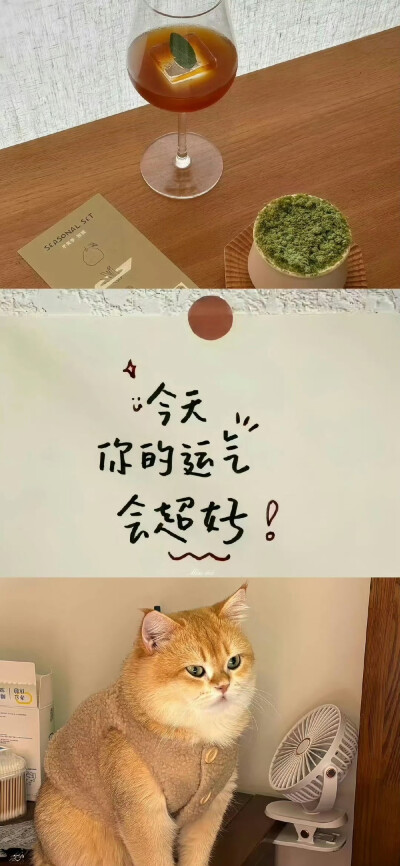 SEASONAL SET
今天
你的运气
会超好！